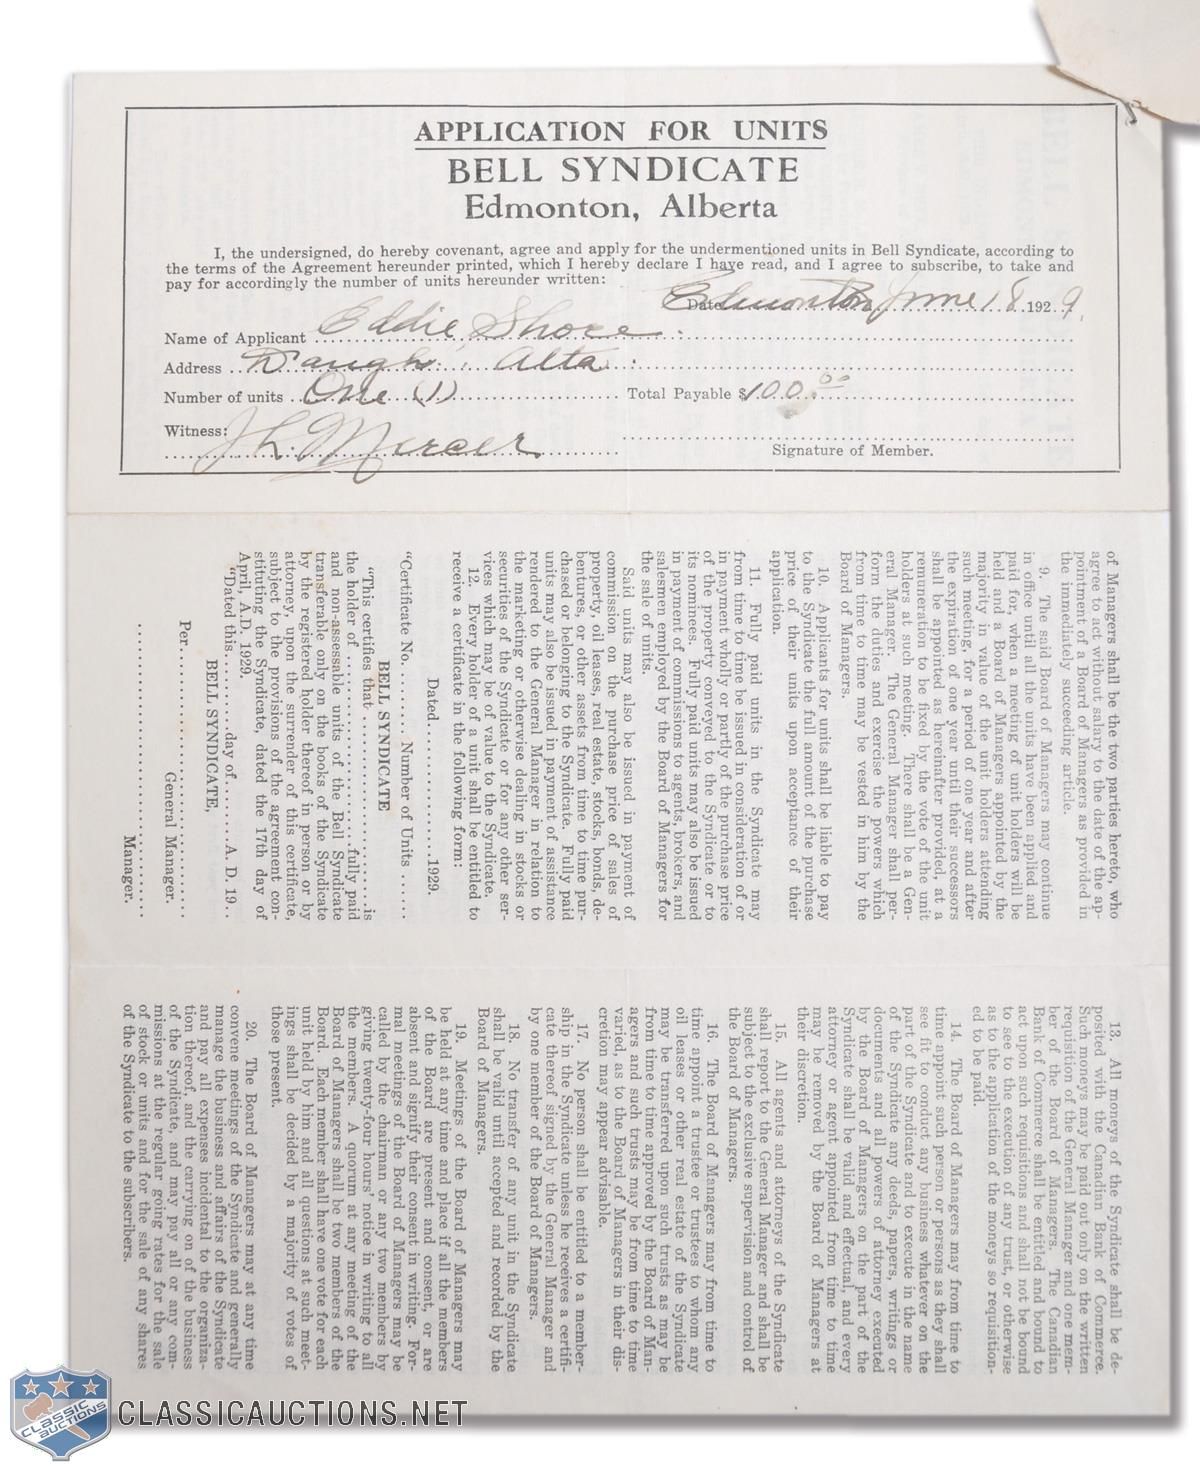 APPLICATION FOR UNITS
BELL SYNDICATE
Edmonton, Alberta
I, the undersigned, do hereby covenant, agree and apply for the undermentioned units in Bell Syndicate, according to
the terms of the Agreement hereunder printed, which I hereby declare I have read, and I agree to subscribe, to take and
pay for accordingly the number of units hereunder written:
Date Edmonton June 18 1929
Name of Applicant Eddie Shore
Address Alta
Number of units One (1) Total Payable $100.00
Witness: J L. Mercer
Signature of Member.
of Managers shall be the two parties hereto, who
agree to act without salary to the date of the ap-
pointment of a Board of Managers as provided in
the immediately succeeding article.
9. The said Board of Managers may continue
in office until all the units have been applied and
paid for, when a meeting of unit holders will be
held and a Board of Managers appointed by the
majority in value of the unit holders attending
such meeting, for a period of one year and after
the expiration of one year until their successors
shall be appointed as hereinafter provided, at a
remuneration to be fixed by the vote of the unit
holders at such meeting. There shall be a Gen-
eral Manager. The General Manager shall per-
form the duties and exercise the powers which
from time to time may be vested in him by the
Board of Managers.
10. Applicants for units shall be liable to pay
to the Syndicate the full amount of the purchase
price of their units upon acceptance of their
application.
11. Fully paid units in the Syndicate may
from time to time be issued in consideration of or
in payment wholly or partly of the purchase price
of the property conveyed to the Syndicate or to
its nominees. Fully paid units may also be issued
in payment of commissions to agents, brokers, and
salesmen employed by the Board of Managers for
the sale of units.
Said units may also be issued in payment of
commission on the purchase price of sales of
property, oil leases, real estate, stocks, bonds, de-
bentures, or other assets from time to time pur-
chased or belonging to the Syndicate. Fully paid
units may also be issued in payment of assistance
rendered to the General Manager in relation to
the marketing or otherwise dealing in stocks or
securities of the Syndicate or for any other ser-
vices which may be of value to the Syndicate.
12. Every holder of a unit shall be entitled to
receive a certificate in the following form:
Dated............1929.
"Certificate No. ...... Number of Units ......
BELL SYNDICATE
"This certifies that ....................is
the holder of ....................fully paid
and non-assessable units of the Bell Syndicate
transferable only on the books of the Syndicate
by the registered holder thereof in person or by
attorney, upon the surrender of this certificate,
subject to the provisions of the agreement con-
stituting the Syndicate, dated the 17th day of
April, A.D. 1929.
"Dated this........day of........A. D. 19..
BELL SYNDICATE,
Per....................
General Manager.
....................
Manager.
13. All moneys of the Syndicate shall be de-
posited with the Canadian Bank of Commerce.
Such moneys may be paid out only on the written
requisition of the General Manager and one mem-
ber of the Board of Managers. The Canadian
Bank of Commerce shall be entitled and bound to
act upon such requisitions and shall not be bound
to see to the execution of any trust, or otherwise
as to the application of the moneys so requisition-
ed to be paid.
14. The Board of Managers may from time to
time appoint such person or persons as they shall
see fit to conduct any business whatever on the
part of the Syndicate and to execute in the name
of the Syndicate any deeds, papers, writings or
documents and all powers of attorney executed
by the Board of Managers on the part of the
Syndicate shall be valid and effectual, and every
attorney or agent appointed from time to time
may be removed by the Board of Managers at
their discretion.
15. All agents and attorneys of the Syndicate
shall report to the General Manager and shall be
subject to the exclusive supervision and control of
the Board of Managers.
16. The Board of Managers may from time to
time appoint a trustee or trustees to whom any
oil leases or other real estate of the Syndicate
may be transferred upon such trusts as may be
from time to time approved by the Board of Man-
agers and such trusts may be from time to time
varied, as to the Board of Managers in their dis-
cretion may appear advisable.
17. No person shall be entitled to a member-
ship in the Syndicate unless he receives a certifi-
cate thereof signed by the General Manager and
by one member of the Board of Managers.
18. No transfer of any unit in the Syndicate
shall be valid until accepted and recorded by the
Board of Managers.
19. Meetings of the Board of Managers may
be held at any time and place if all the members
of the Board are present and consent, or are
absent and signify their consent in writing. For-
mal meetings of the Board of Managers may be
called by the chairman or any two members by
giving twenty-four hours' notice in writing to all
the members. A quorum at any meeting of the
Board of Managers shall be two members of the
Board. Each member shall have one vote for each
unit held by him and all questions at such meet-
ings shall be decided by a majority of votes of
those present.
20. The Board of Managers may at any time
convene meetings of the Syndicate and generally
manage the business and affairs of the Syndicate
and pay all expenses incidental to the organiza-
tion thereof, and the carrying on of the business
of the Syndicate, and may pay all or any com-
missions at the regular going rates for the sale
of stock or units and for the sale of any shares
of the Syndicate to the subscribers.
CLASSIC
AUCTIONS
CLASSICAUCTIONS.NET